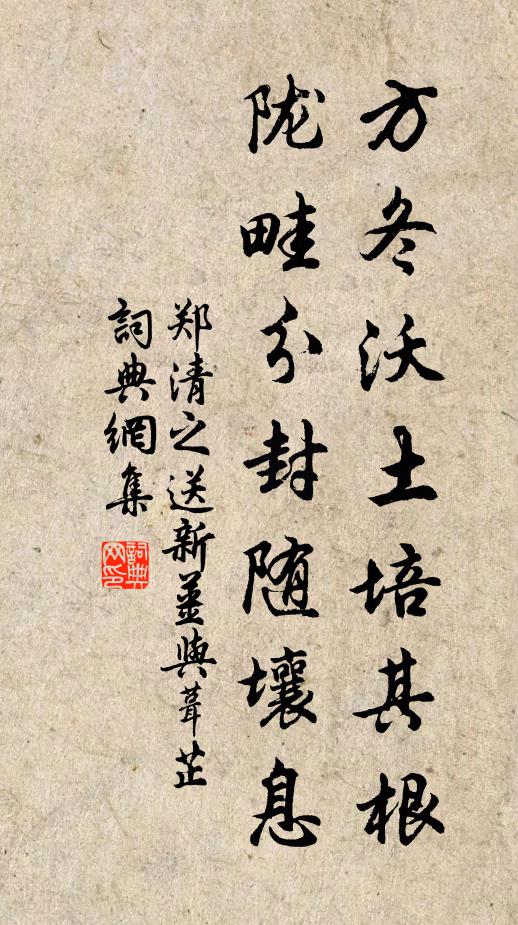 方冬沃土培其根
陇畦分封随壤息
郑清之送新姜與茸芷
詞典網集
詞典
网印